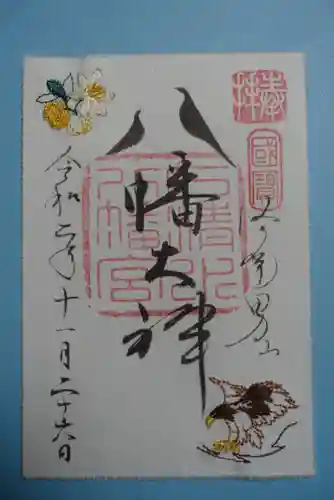 奉拝
國寶
八幡大神
石清水八幡宮
令和二年十一月二十六日